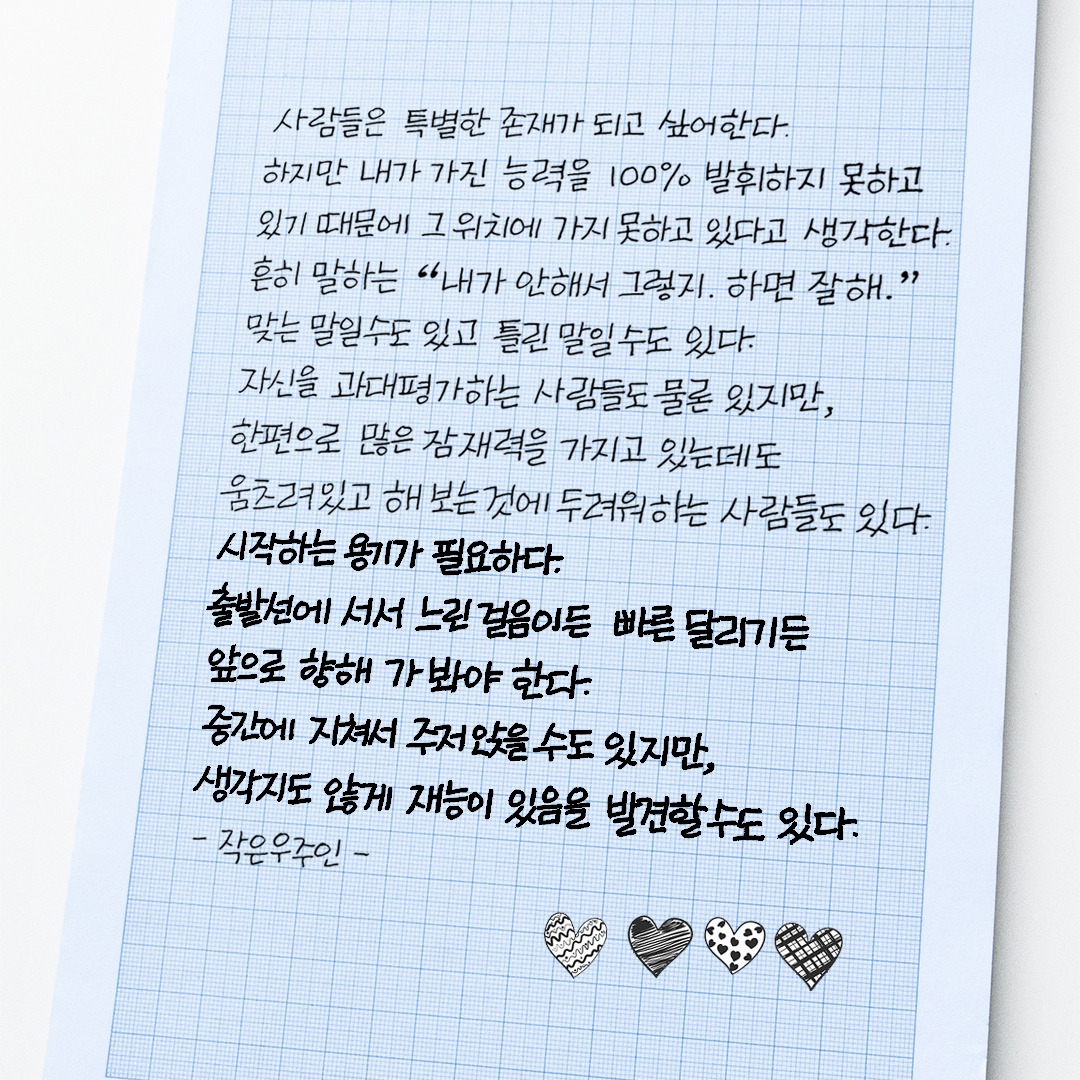 사람들은 특별한 존재가 되고 싶어한다.
하지만 내가 가진 능력을 100% 발휘하지 못하고
있기 때문에 그 위치에 가지 못하고 있다고 생각한다.
흔히 말하는 “내가 안해서 그렇지. 하면 잘해.”
맞는 말일수도 있고 틀린 말일수도 있다.
자신을 과대평가하는 사람들도 물론 있지만,
한편으로 많은 잠재력을 가지고 있는데도
움츠려있고 해 보는 것에 두려워하는 사람들도 있다.
시작하는 용기가 필요하다.
출발선에 서서 느린 걸음이든 빠른 달리기든
앞으로 향해 가 봐야 한다.
중간에 지쳐서 주저앉을 수도 있지만,
생각지도 않게 재능이 있음을 발견할 수도 있다.
- 작은우주인 -